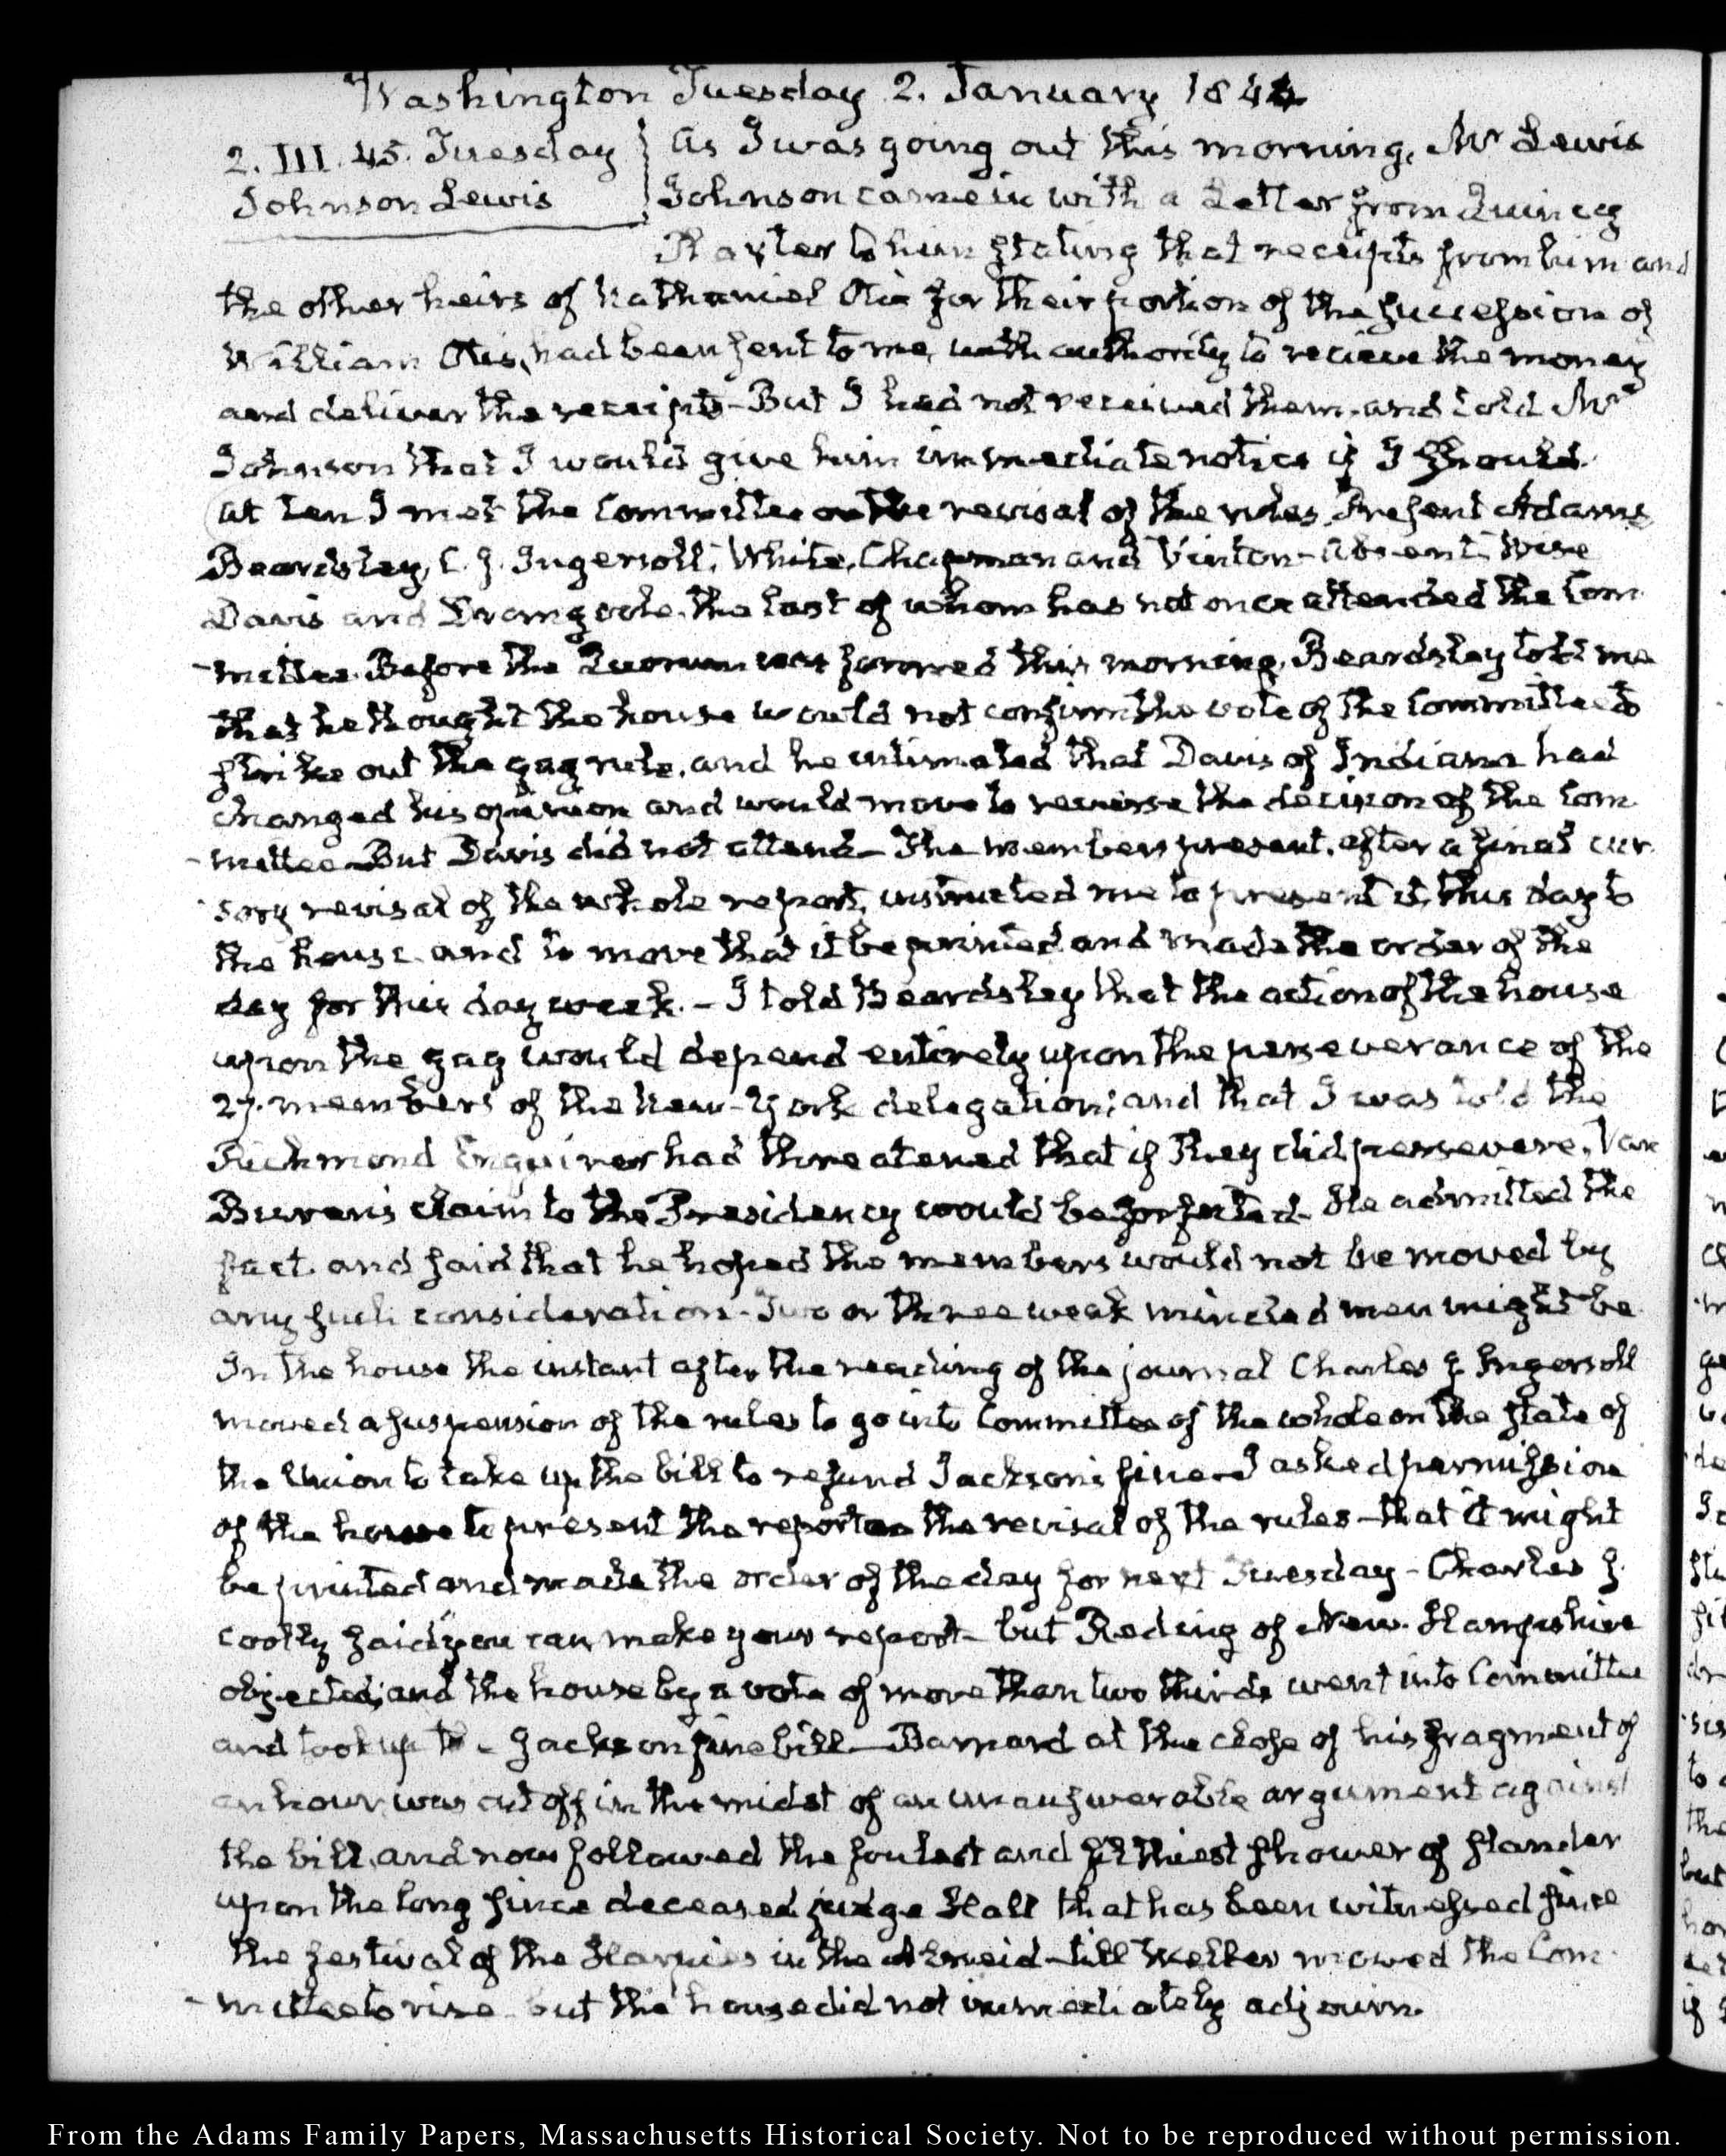 Washington Tuesday 2. January 1844
2. III. 45. Tuesday
Johnson Lewis
As I was going out this morning, Mr Lewis
Johnson came in with a Letter from Quincy
to him stating that receipts from him and
the other heirs of Nathaniel Otis for their portion of the succession of
William Otis, had been sent to me, with authority to recieve the money
and deliver the receipts – But I had not received them, and told Mr
Johnson that I would give him immediate notice if I should.
At ten I met the Committee on the revisal of the rules, Present Adams
Beardsley, C. J. Ingersoll, White, Chapman and Vinton – absent, Wise
Davis and Dromgoole, the last of whom has not once attended the Com
-mittee. Before the Quorum was formed this morning, Beardsley told me
that he thought the house would not confirm the vote of the Committee to
strike out the gag rule, and he intimated that Davis of Indiana had
changed his opinion and would move to reverse the decision of the Com
-mittee – But Davis did not attend – The members present, after a final cur
-sory revisal of the whole report, instructed me to present it, this day to
the house, and to move that it be printed and made the order of the
day for this day week. – I told Beardsley that the action of the house
upon the gag would depend entirely upon the perseverance of the
27. members of the New-York delegation; and that I was told the
Richmond Enquirer had threatened that if they did persevere, Van
Buren's claim to the Presidency would be forfeited. He admitted the
fact, and said that he hoped the members would not be moved by
any such consideration – Two or three weak minded men might be.
In the house the instant after the reading of the journal Charles J Ingersoll
moved a suspension of the rules to go into Committee of the whole on the state of
the Union to take up the bill to refund Jackson's fine – I asked permission
of the house to present the report on the revisal of the rules – that it might
be printed and made the order of the day for next Tuesday – Charles J.
coolly said you can make your report – but Reding of New-Hampshire
objected; and the house by a vote of more than two thirds went into Committee
and took up the Jackson fine bill – Barnard at the close of his fragment of
an hour, was cut off in the midst of an unanswerable argument against
the bill, and now followed the foulest and filthiest shower of slander
upon the long since deceased judge Hall that has been witnessed since
the festival of the Harpies in the Aeneid – till Weller moved the Com
-mittee to rise but the house did not immediately adjourn.
From the Adams Family Papers, Massachusetts Historical Society. Not to be reproduced without permission.